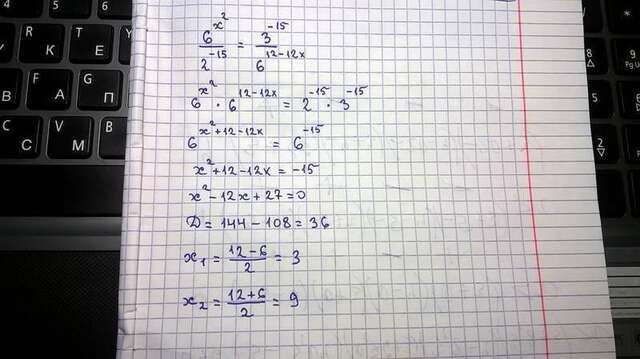 6^{x^2} / 2^{-15} = 3^{-15} / 6^{12-12x}
6^{x^2} · 6^{12-12x} = 2^{-15} · 3^{-15}
6^{x^2+12-12x} = 6^{-15}
x^2+12-12x = -15
x^2-12x+27=0
D = 144-108 = 36
x_1 = (12-6)/2 = 3
x_2 = (12+6)/2 = 9
4
R К
T Е
F А
G П
C С
V М
9
Pg Up
6
2